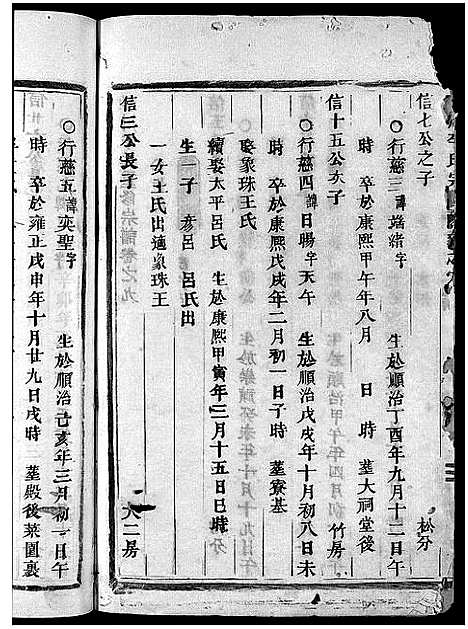 信七公之子
松分
○行慈三諱端緒字 生於順治丁酉年九月十二日午
時 卒於康熙甲午年八月 日 時 葬大祠堂後
信十五公次子
竹房
○行慈四諱日暘字天午 生於順治戊戌年十月初八日未
時 卒於康熙戊戌年二月初一日子時 葬寮基
娶象珠王氏
續娶太平呂氏 生於康熙甲寅年三月十五日巳時
生一子 彥呂 呂氏出
一女王氏出適象珠王
信三公長子
大二房
○行慈五諱奕聖字 生於順治己亥年三月初一日午
時 卒於雍正戊申年十月廿九日戌時 葬殿後菜園裏